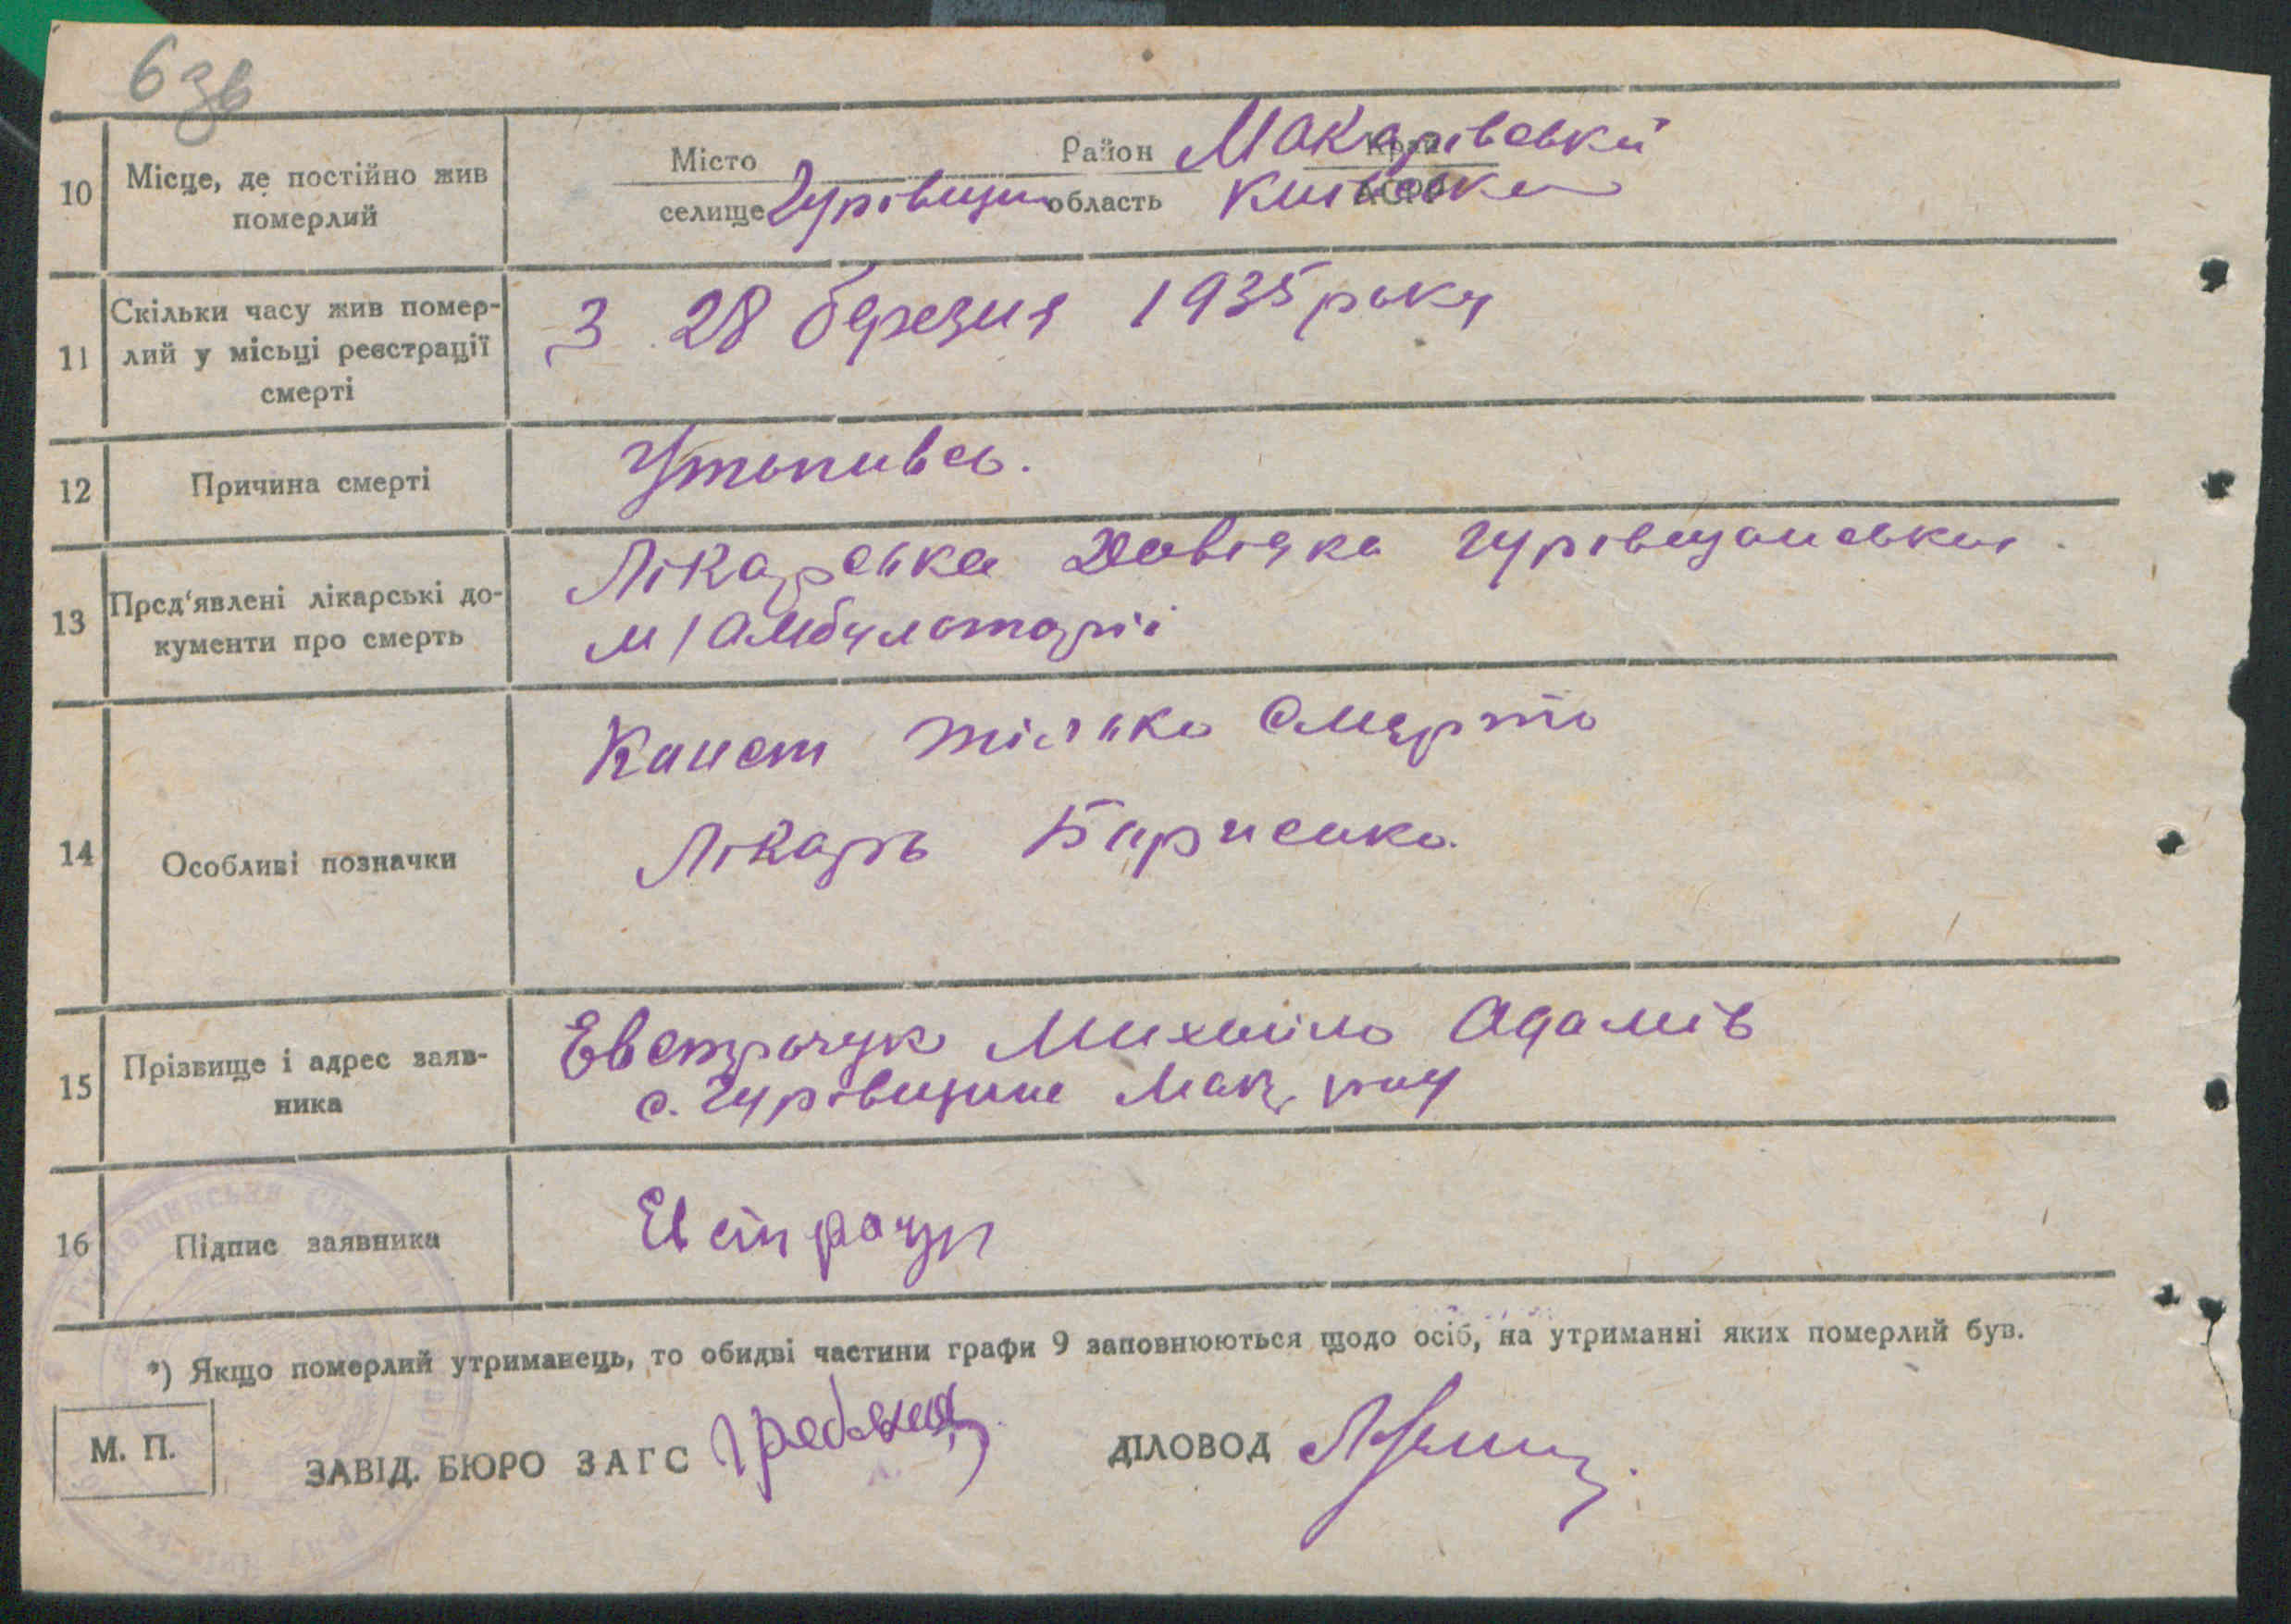 6зв
10 Місце, де постійно жив померлий
Місто
селище Гурівщина
Район Макарівській
область Київська
Край
АСРР
11 Скільки часу жив помер-
лий у місьці реєстрації
смерті
З 28 березня 1935 року
12 Причина смерті
Утопивсь.
13 Пред'явлені лікарські до-
кументи про смерть
Лікарська Довідка Гурівщанської
м/Амбулаторії
14 Особливі позначки
Конст тілько смерть
Лікарь Борисенко.
15 Прізвище і адрес заяв-
ника
Евстрачук Михайло Адамів
с. Гурівщина Мак. р-ну
16 Підпис заявника
Евстрачук
*) Якщо померлий утриманець, то обидві частини графи 9 заповнюються щодо осіб, на утриманні яких померлий був.
М. П.
ЗАВІД. БЮРО ЗАГС
ДІЛОВОД